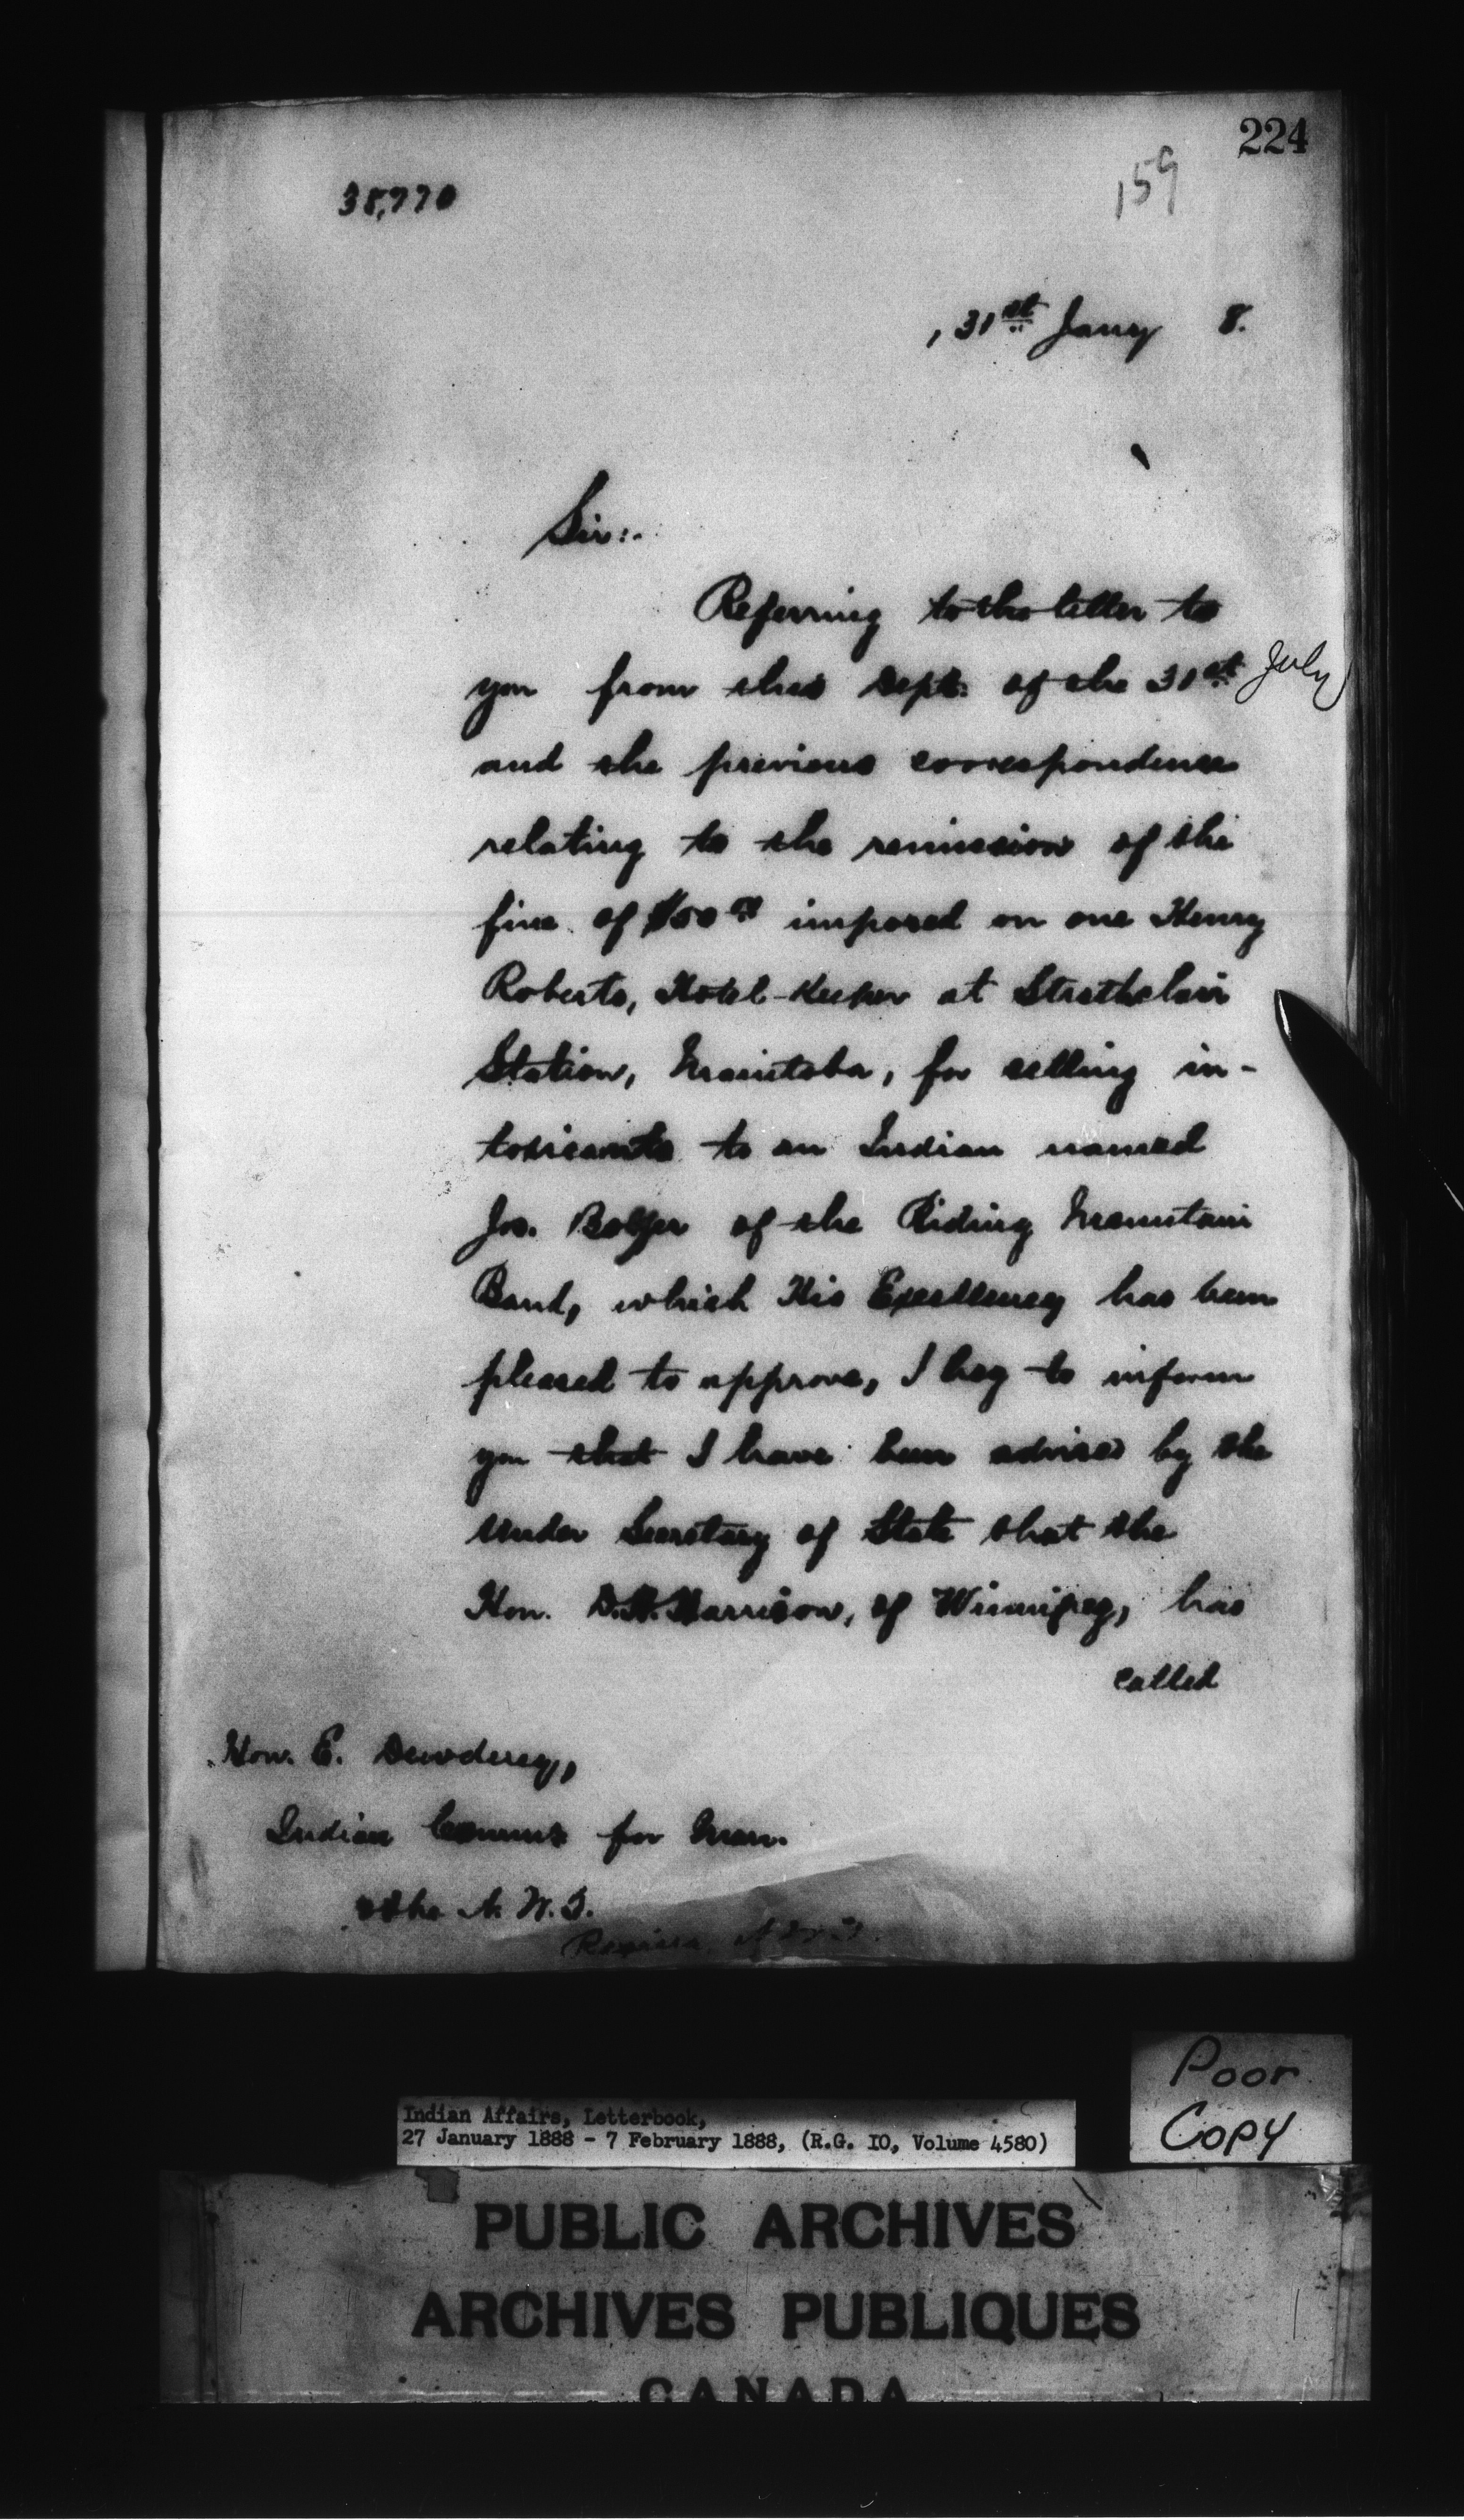 224
159
38,770
, 31st Jany 8.
Sir:.
Referring to the letter to
you from this Dept. of the 31st July
and the previous correspondence
relating to the remission of the
fine of $50 imposed on one Henry
Roberts, Hotel-Keeper at Strathclair
Station, Manitoba, for selling in-
toxicants to an Indian named
Jos. of the Riding Mountain
Band, which His Excellency has been
pleased to approve, I beg to inform
you that I have been advised by the
Under Secretary of State that the
Hon. D.H. Harrison, of Winnipeg, has
called
Hon. E. Dewdney,
Indian Commr for Man.
& the N. W. T.
Regina. N.W.T.
Poor
Copy
Indian Affairs, Letterbook,
27 January 1888 - 7 February 1888, (R.G. IO, Volume 4580)
PUBLIC ARCHIVES
ARCHIVES PUBLIQUES
CANADA